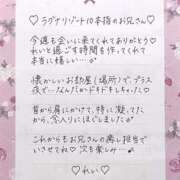 ♡ラグナリゾート10本指のお兄さん♡
今週も会いに来てくれてありがとう♡
れいと過ごす時間を作ってくれて
本当に嬉しい…
懐かしいお部屋(場所)で、プラス
夜で…なんだかドキドキしちゃった♡
耳から肩にかけて、特に凝ってた
から、念入りにほぐしました♡
これからもお兄さんの癒し担当で
いさせてね♡次も楽しみ…
♡れい♡